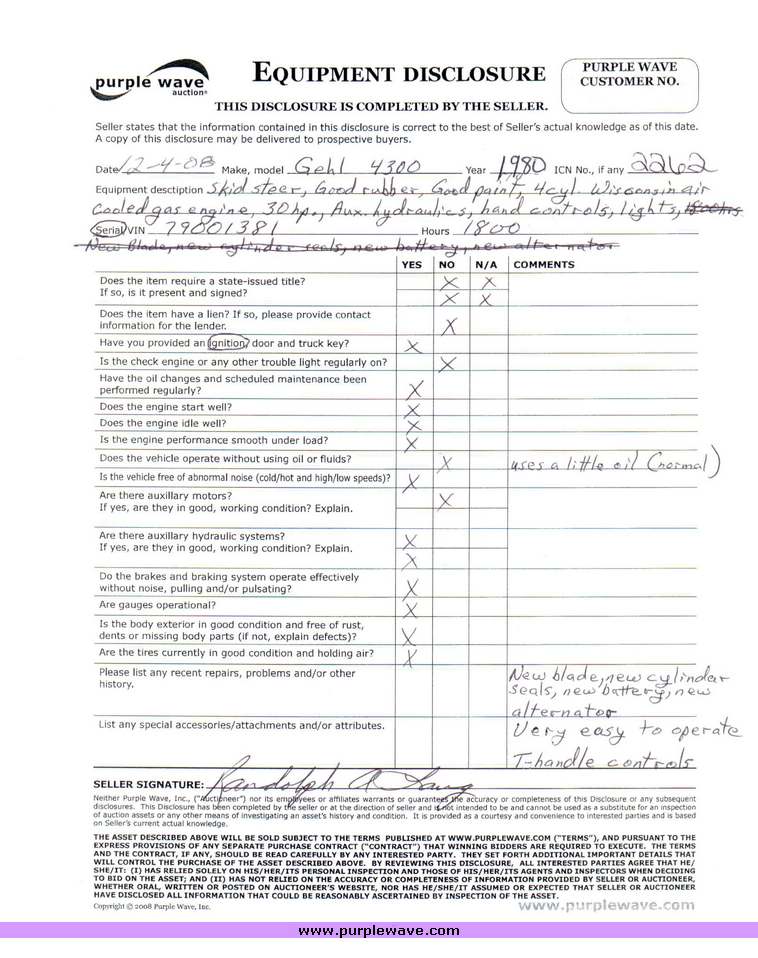 purple wave
auction®
EQUIPMENT DISCLOSURE
PURPLE WAVE
CUSTOMER NO.
THIS DISCLOSURE IS COMPLETED BY THE SELLER.
Seller states that the information contained in this disclosure is correct to the best of Seller's actual knowledge as of this date.
A copy of this disclosure may be delivered to prospective buyers.
Date 12-4-08 Make, model Gehl 4300 Year 1980 ICN No., if any 2262
Equipment desctiption Skid steer, Good rubber, Good paint, 4cyl. Wisconsin air
cooled gas engine, 30 hp., Aux. hydraulics, hand controls, lights, 1800hrs
Serial/VIN 79001381 Hours 1800
New Blade, new cylinder seals, new battery, new alternator
YES NO N/A COMMENTS
Does the item require a state-issued title? X X
If so, is it present and signed? X X
Does the item have a lien? If so, please provide contact
information for the lender. X
Have you provided an ignition, door and truck key? X
Is the check engine or any other trouble light regularly on? X
Have the oil changes and scheduled maintenance been
performed regularly? X
Does the engine start well? X
Does the engine idle well? X
Is the engine performance smooth under load? X
Does the vehicle operate without using oil or fluids? X uses a little oil (normal)
Is the vehicle free of abnormal noise (cold/hot and high/low speeds)? X
Are there auxillary motors? X
If yes, are they in good, working condition? Explain.
Are there auxillary hydraulic systems? X
If yes, are they in good, working condition? Explain. X
Do the brakes and braking system operate effectively
without noise, pulling and/or pulsating? X
Are gauges operational? X
Is the body exterior in good condition and free of rust,
dents or missing body parts (if not, explain defects)? X
Are the tires currently in good condition and holding air? X
Please list any recent repairs, problems and/or other
history.
New blade, new cylinder
seals, new battery, new
alternator
List any special accessories/attachments and/or attributes.
Very easy to operate
T-handle controls
SELLER SIGNATURE: Randolph A. Lang
Neither Purple Wave, Inc., ("Auctioneer") nor its employees or affiliates warrants or guarantees the accuracy or completeness of this Disclosure or any subsequent
disclosures. This Disclosure has been completed by the seller or at the direction of seller and is not intended to be and cannot be used as a substitute for an inspection
of auction assets or any other means of investigating an asset's history and condition. It is provided as a courtesy and convenience to interested parties and is based
on Seller's current actual knowledge.
THE ASSET DESCRIBED ABOVE WILL BE SOLD SUBJECT TO THE TERMS PUBLISHED AT WWW.PURPLEWAVE.COM ("TERMS"), AND PURSUANT TO THE
EXPRESS PROVISIONS OF ANY SEPARATE PURCHASE CONTRACT ("CONTRACT") THAT WINNING BIDDERS ARE REQUIRED TO EXECUTE. THE TERMS
AND THE CONTRACT, IF ANY, SHOULD BE READ CAREFULLY BY ANY INTERESTED PARTY. THEY SET FORTH ADDITIONAL IMPORTANT DETAILS THAT
WILL CONTROL THE PURCHASE OF THE ASSET DESCRIBED ABOVE. BY REVIEWING THIS DISCLOSURE, ALL INTERESTED PARTIES AGREE THAT HE/
SHE/IT: (I) HAS RELIED SOLELY ON HIS/HER/ITS PERSONAL INSPECTION AND THOSE OF HIS/HER/ITS AGENTS AND INSPECTORS WHEN DECIDING
TO BID ON THE ASSET; AND (II) HAS NOT RELIED ON THE ACCURACY OR COMPLETENESS OF INFORMATION PROVIDED BY SELLER OR AUCTIONEER,
WHETHER ORAL, WRITTEN OR POSTED ON AUCTIONEER'S WEBSITE, NOR HAS HE/SHE/IT ASSUMED OR EXPECTED THAT SELLER OR AUCTIONEER
HAVE DISCLOSED ALL INFORMATION THAT COULD BE REASONABLY ASCERTAINED BY INSPECTION OF THE ASSET.
Copyright © 2008 Purple Wave, Inc.
www.purplewave.com
www.purplewave.com